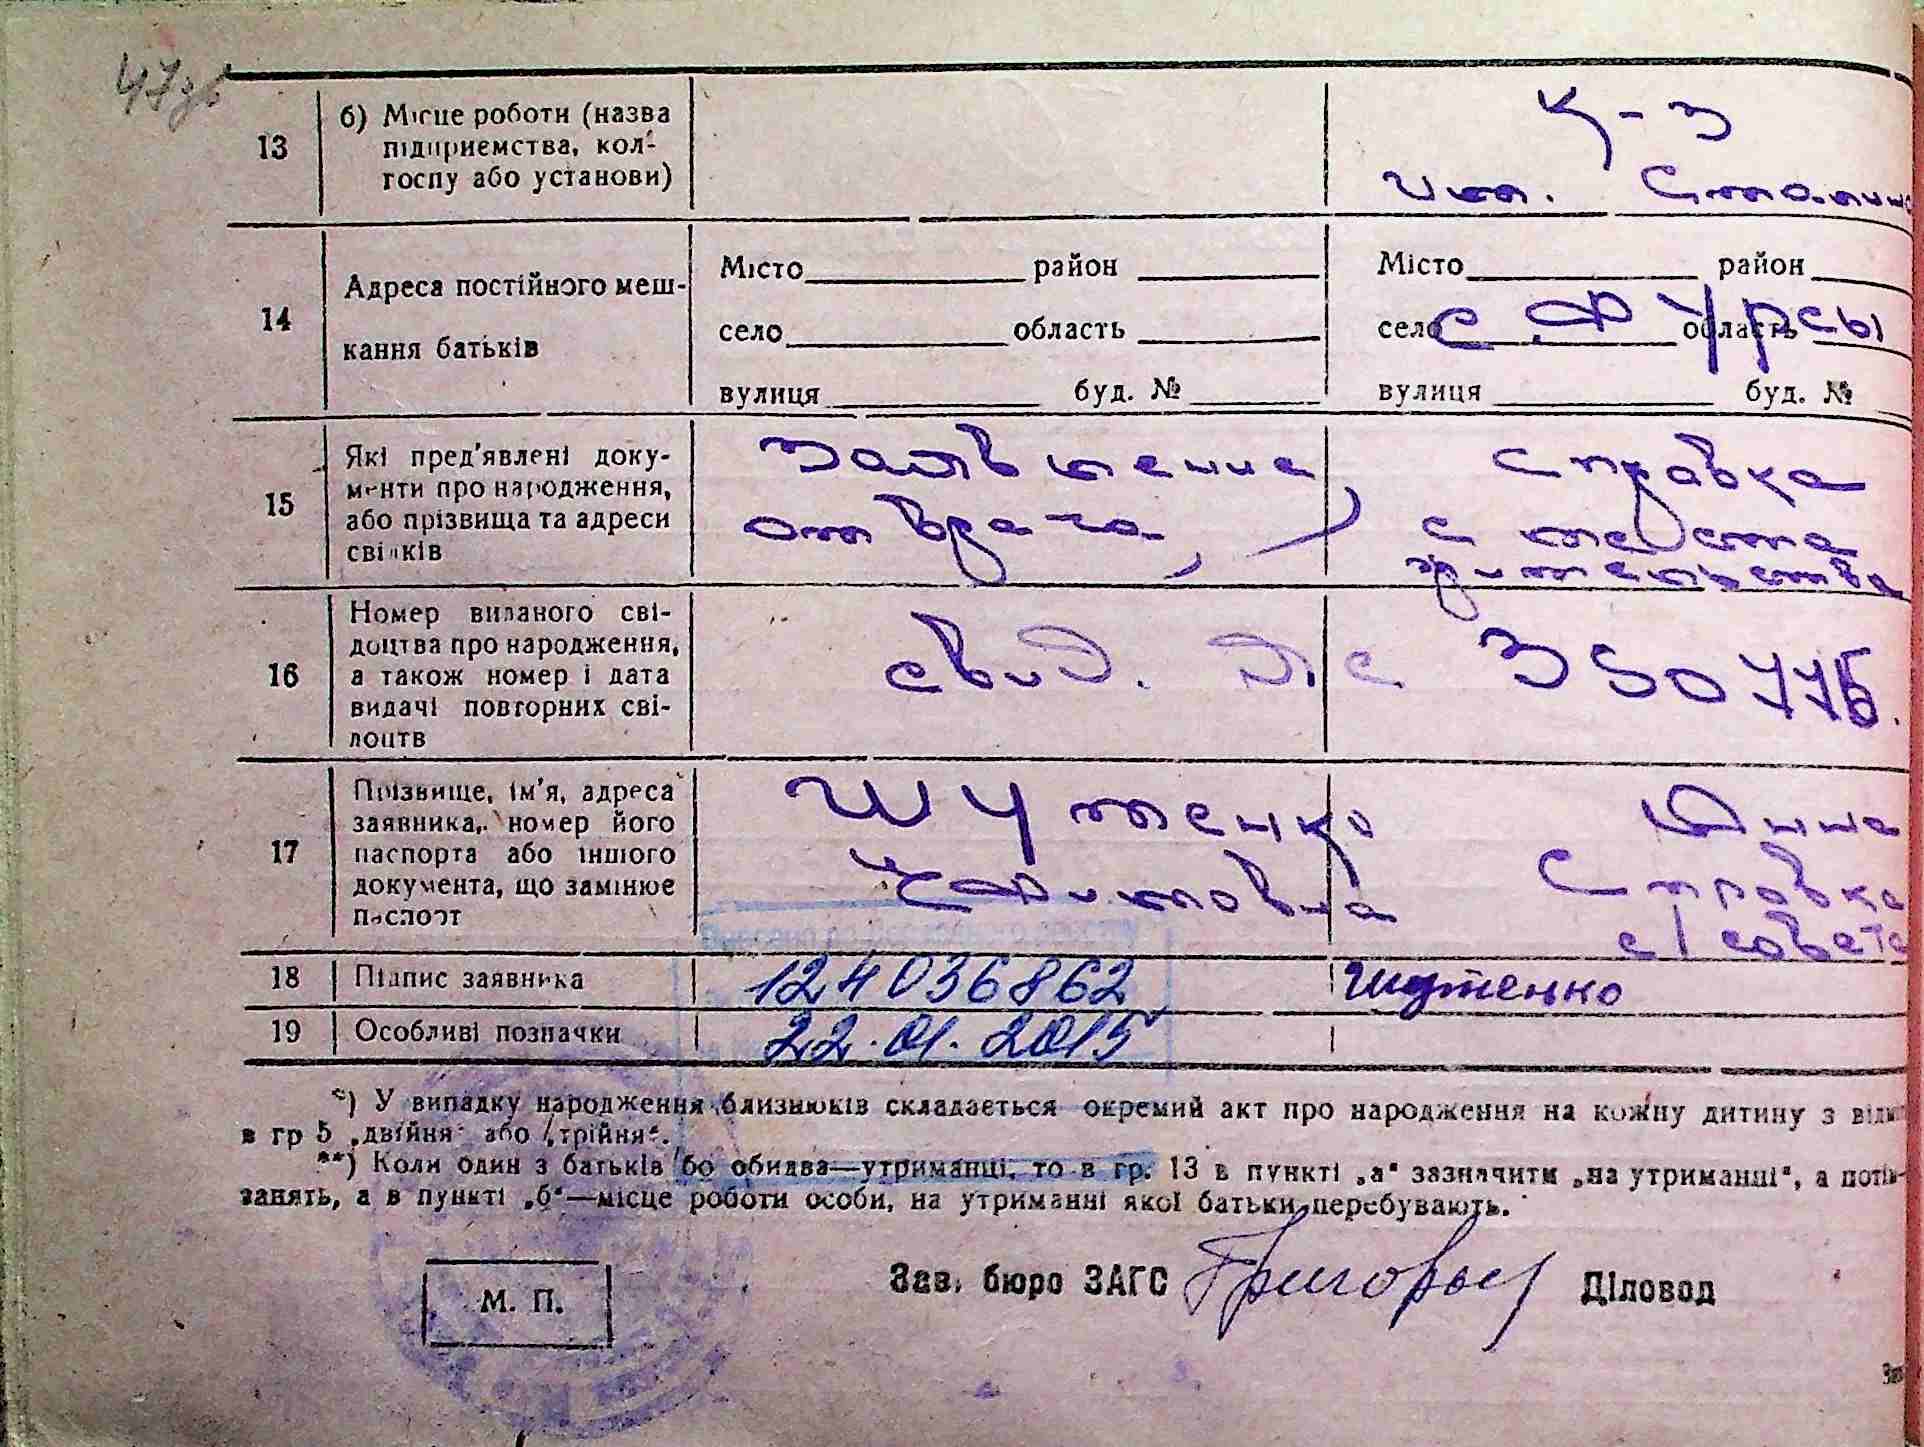 47зв
13 б) Місце роботи (назва підприємства, колгоспу або установи)
К-з
им. Сталина
14 Адреса постійного мешкання батьків
Місто район Місто район
село область село область
с. Фурсы
вулиця буд. № вулиця буд. №
15 Які пред'явлені документи про народження, або прізвища та адреси свідків
Заявление справка
от врача, с места
жительства
16 Номер виданого свідоцтва про народження, а також номер і дата видачі повторних свідоцтв
свид.
17 Прізвище, ім'я, адреса заявника, номер його паспорта або іншого документа, що замінює паспорт
Шутенко
Справка
с/совета
18 Підпис заявника 124036862 Шутенко
19 Особливі позначки 22.01.2015
*) У випадку народження близнюків складається окремий акт про народження на кожну дитину з
в гр 5 „двійня" або „трійня".
**) Коли один з батьків бо обидва—утриманці, то в гр. 13 в пункті „а" зазначити „на утриманні", а
занять, а в пункті „б"—місце роботи особи, на утриманні якої батьки перебувають.
Зав. бюро ЗАГС Діловод
М. П.